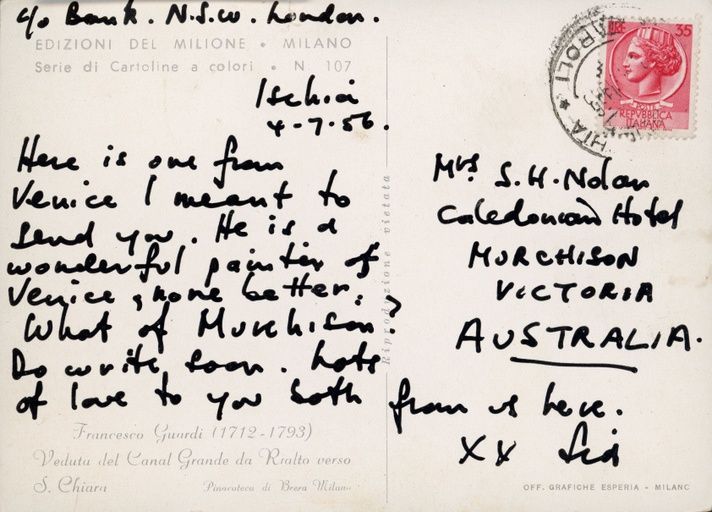 c/o Bank. N.S.W. London.
EDIZIONI DEL MILIONE • MILANO
Serie di Cartoline a colori • N. 107
Ischia
4-7.56.
Here is one from
Venice I meant to
send you. He is a
wonderful painter of
Venice, none better.
What of Murchison?
Do write soon. Lots
of love to you both from us here.
XX Sid
Francesco Guardi (1712-1793)
Veduta del Canal Grande da Rialto verso
S. Chiara
Pinacoteca di Brera Milano
Riproduzione vietata
LIRE 35
POSTE
REPVBBLICA
ITALIANA
NAPOLI
Mrs S.H. Nolan
Caledonian Hotel
MURCHISON
VICTORIA
AUSTRALIA.
OFF. GRAFICHE ESPERIA - MILANO